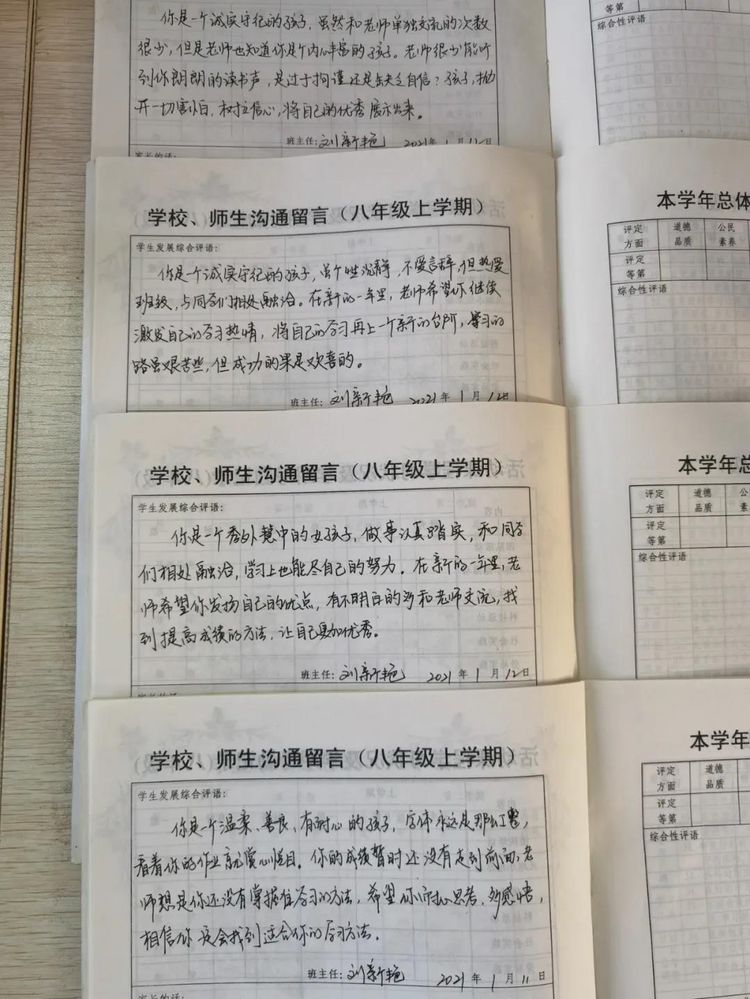 你是一个诚实守纪的孩子，虽然和老师单独交流的次数
很少，但是老师也知道你是个内心丰富的孩子。老师很少能听
到你朗朗的读书声，是过于拘谨还是缺乏自信？孩子，抛
开一切害怕，树立信心，将自己的优秀展示出来。
班主任：刘新艳 2021年1月12日
家长的话：
学校、师生沟通留言（八年级上学期）
学生发展综合评语：
你是一个诚实守纪的孩子，虽个性沉静，不爱言辞，但热爱
班级，与同学们相处融洽。在新的一年里，老师希望你继续
激发自己的学习热情，将自己的学习再上一个新的台阶，学习的
路虽艰苦些，但成功的果是欢喜的。
班主任：刘新艳 2021年1月12日
学校、师生沟通留言（八年级上学期）
学生发展综合评语：
你是一个秀外慧中的女孩子，做事认真踏实，和同学
们相处融洽，学习上也能尽自己的努力。在新的一年里，老
师希望你发扬自己的优点，有不明白的多和老师交流，找
到提高成绩的方法，让自己更加优秀。
班主任：刘新艳 2021年1月12日
学校、师生沟通留言（八年级上学期）
学生发展综合评语：
你是一个温柔、善良、有耐心的孩子，字体永远是那么工整，
看着你的作业就赏心悦目。你的成绩暂时还没有走到前面，老
师想是你还没有掌握住学习的方法，希望你用心思考，多感悟，
相信你会找到适合你的学习方法。
班主任：刘新艳 2021年1月11日
综合性评语
本学年总体
评定方面 道德品质 公民素养
评定等第
综合性评语
本学年总
评定方面 道德品质
评定等第
综合性评语
本学年
评定方面 道德品质
评定等第
综合性评语